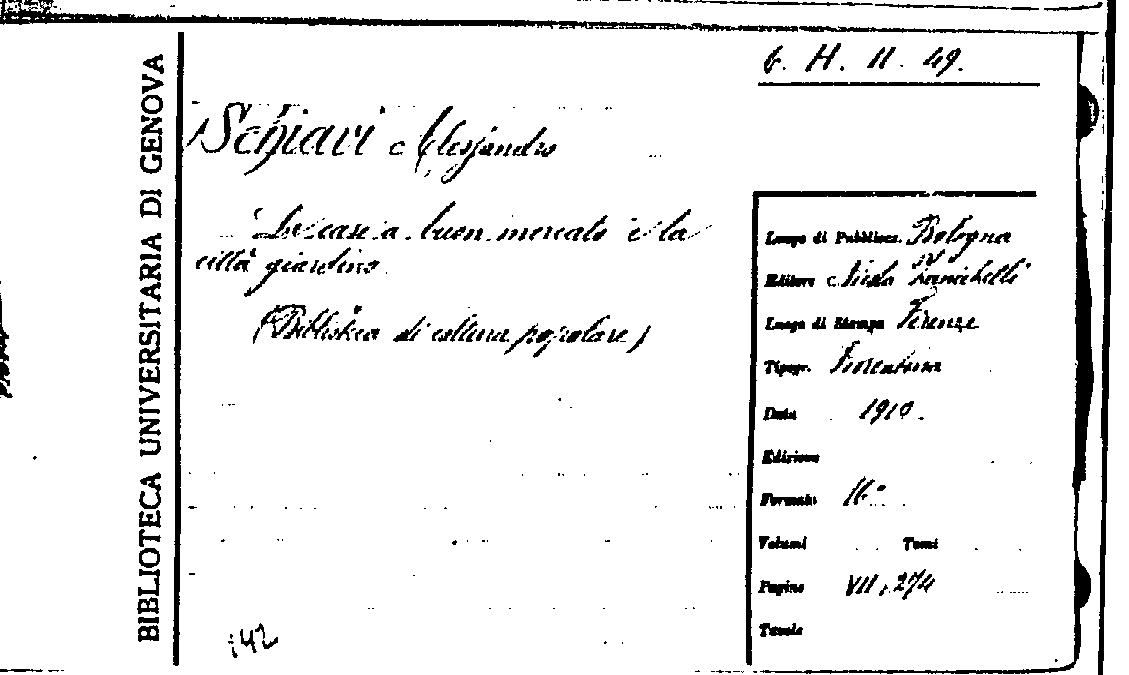 BIBLIOTECA UNIVERSITARIA DI GENOVA
6. H. II. 49.
Schiavi Alessandro
Le case a buon mercato e la
città giardino.
(Biblioteca di coltura popolare)
Luogo di Pubblicaz. Bologna
Editore Nicola Zanichelli
Luogo di Stampa Firenze
Tipogr. Fiorentina
Data 1910.
Edizione
Formato 16°
Volumi Tomi
Pagine VII, 274
Tavole
142